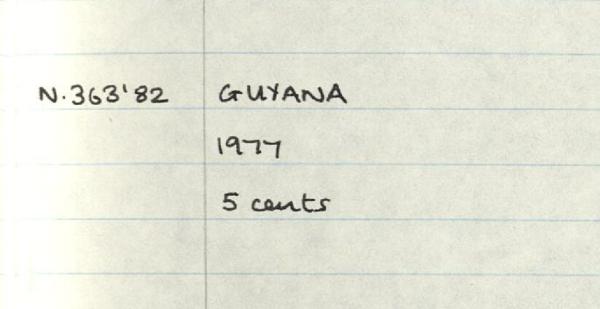 N.363'82 GUYANA
1977
5 cents